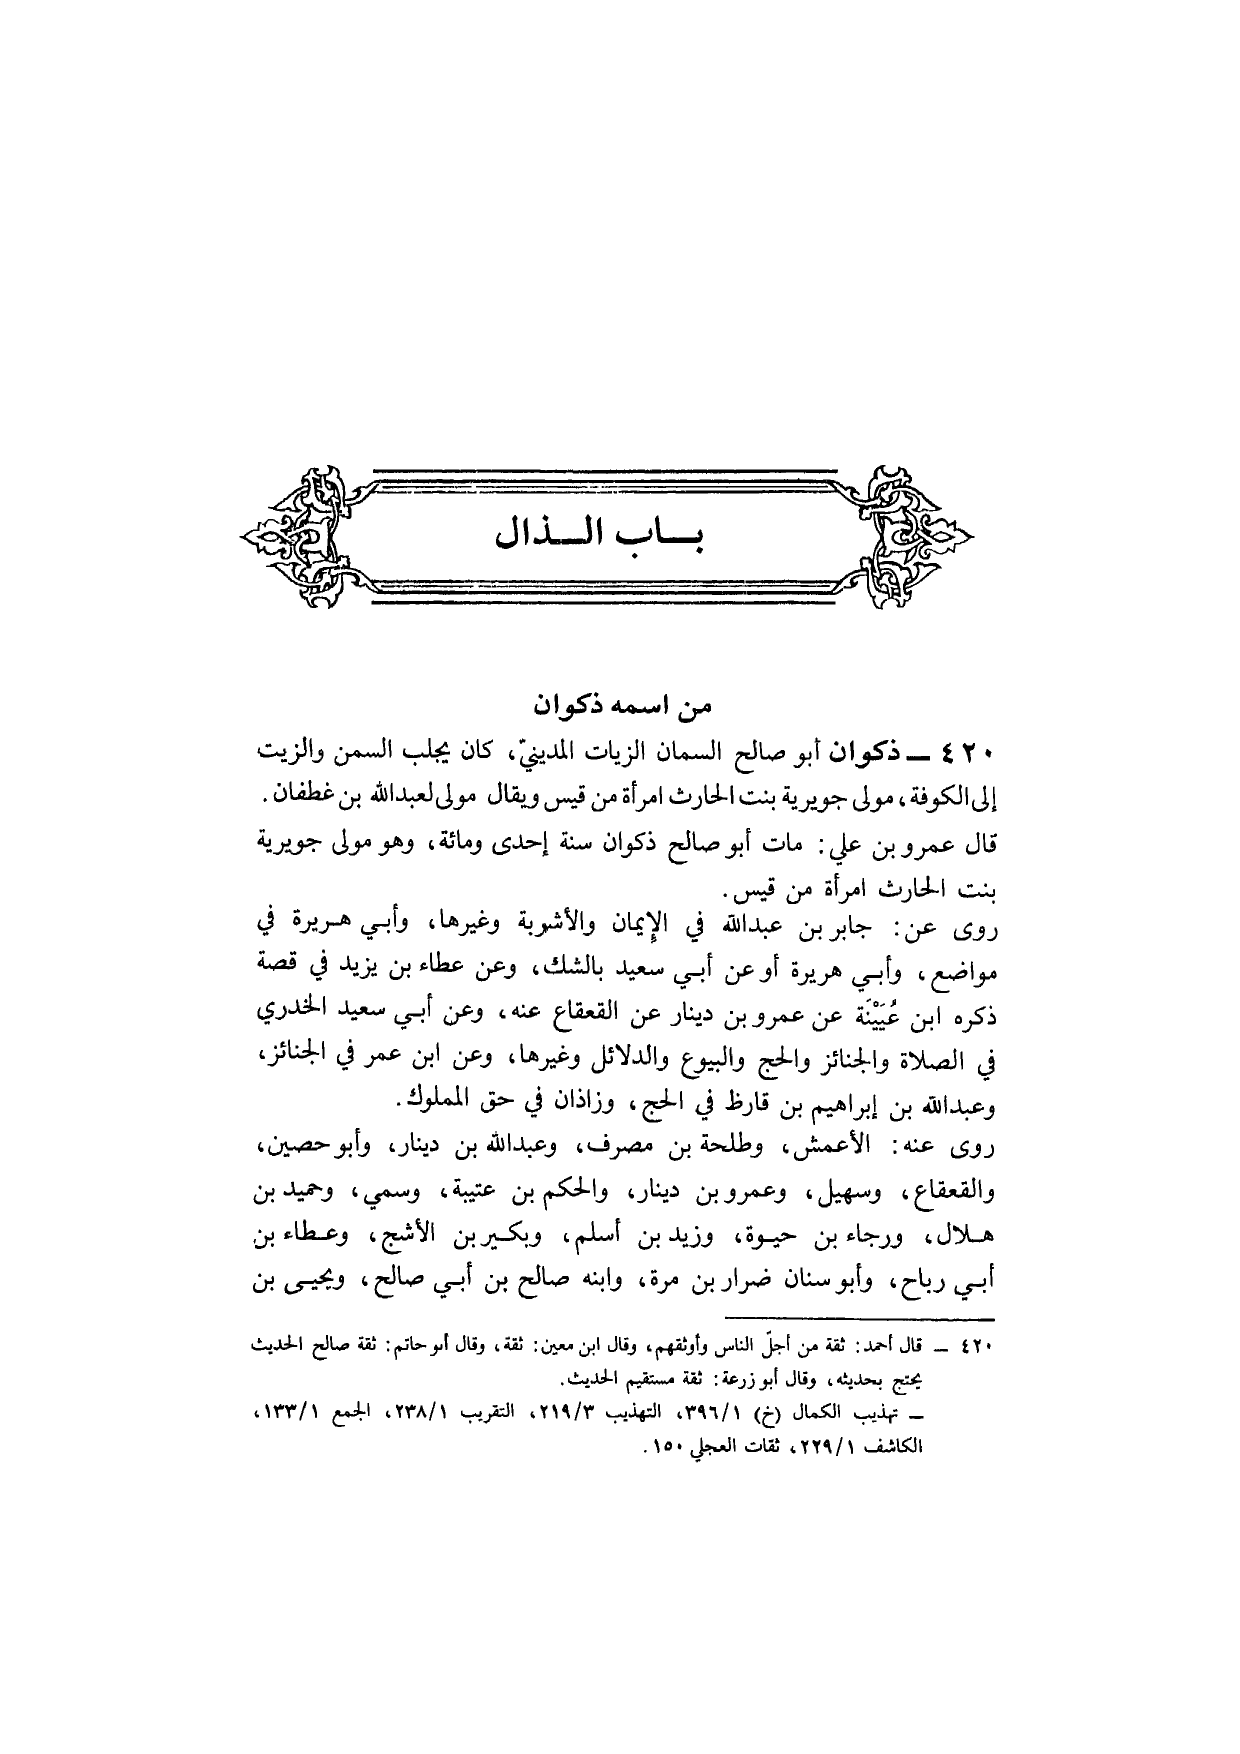 بــاب الــذال
من اسمه ذكوان
٤٢٠ ــ ذكوان أبو صالح السمان الزيات المدينيّ، كان يجلب السمن والزيت
إلى الكوفة، مولى جويرية بنت الحارث امرأة من قيس ويقال مولى لعبدالله بن غطفان.
قال عمرو بن علي: مات أبو صالح ذكوان سنة إحدى ومائة، وهو مولى جويرية
بنت الحارث امرأة من قيس.
روى عن: جابر بن عبدالله في الإِيمان والأشربة وغيرها، وأبـي هـريرة في
مواضع، وأبـي هريرة أو عن أبـي سعيد بالشك، وعن عطاء بن يزيد في قصة
ذكره ابن عُيَيْنَة عن عمرو بن دينار عن القعقاع عنه، وعن أبـي سعيد الخدري
في الصلاة والجنائز والحج والبيوع والدلائل وغيرها، وعن ابن عمر في الجنائز،
وعبدالله بن إبراهيم بن قارظ في الحج، وزاذان في حق المملوك.
روى عنه: الأعمش، وطلحة بن مصرف، وعبدالله بن دينار، وأبو حصين،
والقعقاع، وسهيل، وعمرو بن دينار، والحكم بن عتيبة، وسمي، وحميد بن
هـلال، ورجاء بن حيـوة، وزيد بن أسلم، وبكـير بن الأشج، وعـطاء بن
أبـي رباح، وأبو سنان ضرار بن مرة، وابنه صالح بن أبـي صالح، ويحيـى بن
٤٢٠ ــ قال أحمد: ثقة من أجلّ الناس وأوثقهم، وقال ابن معين: ثقة، وقال أبو حاتم: ثقة صالح الحديث
يحتج بحديثه، وقال أبو زرعة: ثقة مستقيم الحديث.
ــ تهذيب الكمال (خ) ٣٩٦/١، التهذيب ٢١٩/٣، التقريب ٢٣٨/١، الجمع ١٣٣/١،
الكاشف ٢٢٩/١، ثقات العجلي ١٥٠.